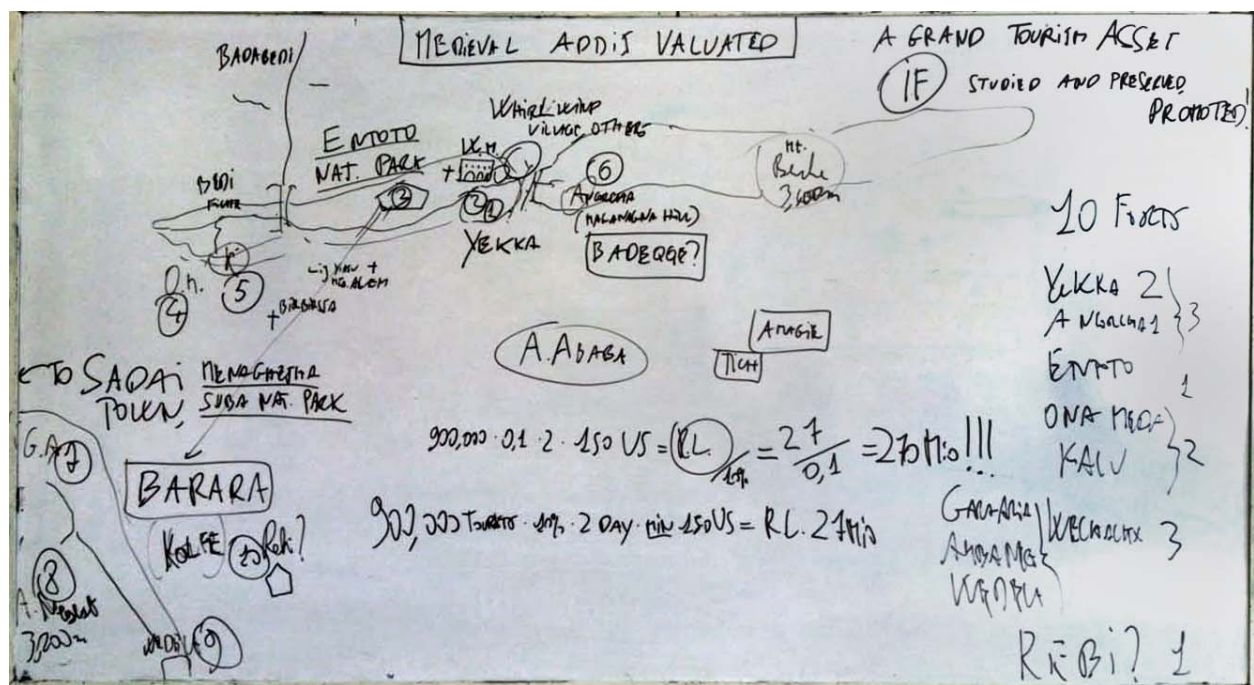 MEDIEVAL ADDIS VALUATED
A GRAND TOURISM ASSET
IF STUDIED AND PRESERVED,
PROMOTED!
BADABEDI
ENTOTO
NAT. PARK
WHIRLWIND
VILLAGE, OTHERS
W.M.
Mt.
3,600m
BEDI
3
2
1
6
ANGORCHA
YEKKA
BADEQGE?
K
5
O.M.
4
+ BIRBIRSA
A.ABABA
AMAGIR
TICH
← TO SADAI
TOLEN,
MENAGHESHA
SUBA NAT. PARK
G.A 7
BARARA
KOLFE 10 Rebi?
8
3,200m
9
900,000 · 0,1 · 2 · 150 US = R.L. / 10% = 27 / 0,1 = 270 Mio!!!
900,000 TOURISTS · 10% · 2 DAY · min 150 US = R.L. 27 Mio
10 FORTS
YEKKA 2
ANGORCHA 1
3
ENTOTO 1
ONA MEDA
KALU
2
3
REBI? 1